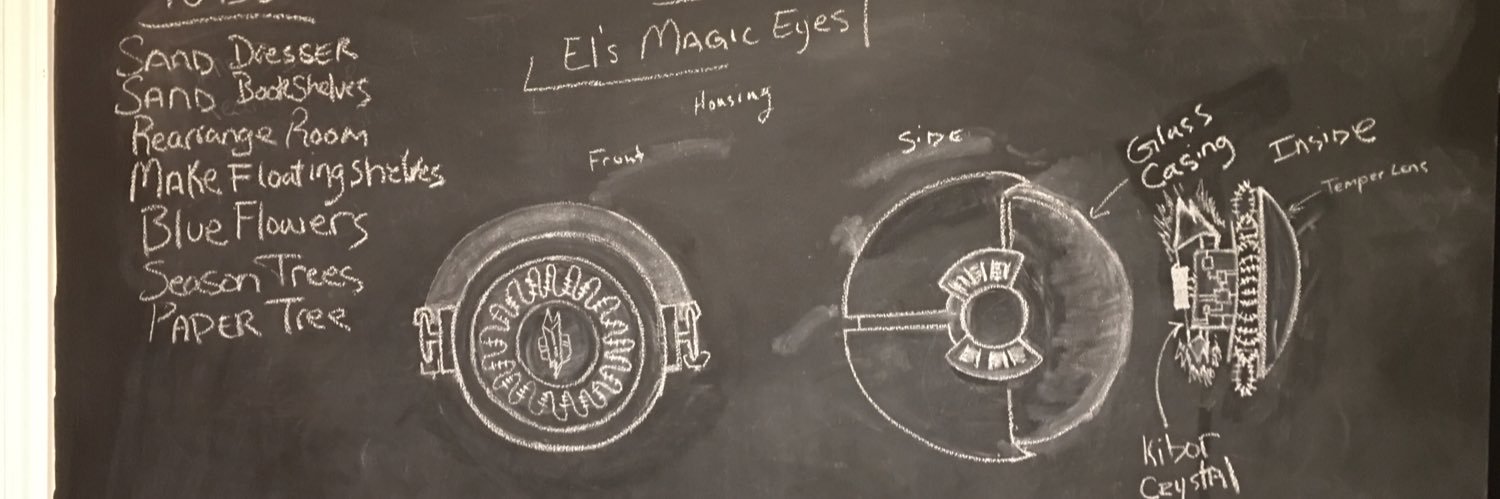 Sand Dresser
Sand Bookshelves
Rearrange Room
Make Floating shelves
Blue Flowers
Season Trees
Paper Tree
El's Magic Eyes
Housing
Front
Side
Glass
Casing
Inside
Temper Lens
Kibor
Crystal